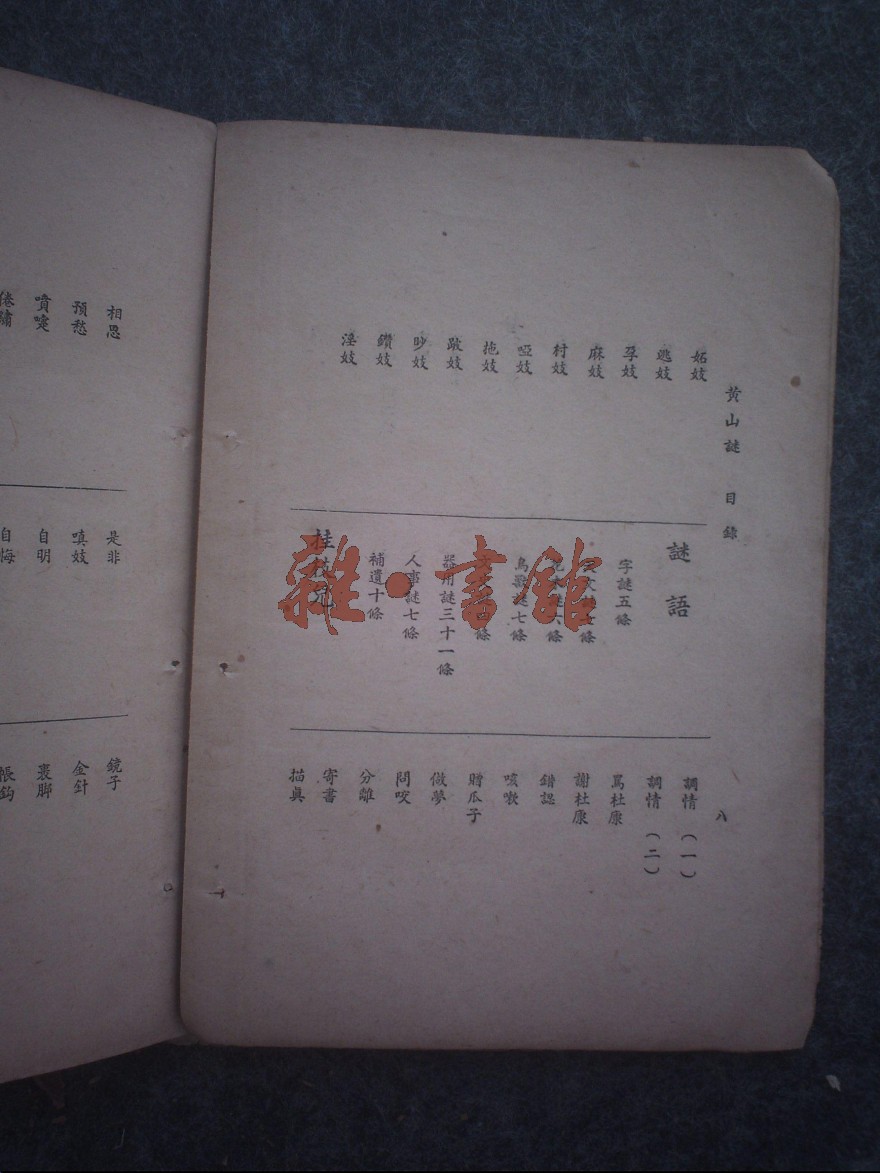 黄山謎 目錄
八
妬妓
逃妓
孕妓
麻妓
村妓
啞妓
拖妓
跛妓
眇妓
鑽妓
淫妓
謎語
字謎五條
鳥獸謎七條
器用謎三十一條
人事謎七條
補遺十條
掛枝兒
調情(一)
調情(二)
罵杜康
謝杜康
錯認
咳嗽
贈瓜子
做夢
問咬
分離
寄書
描眞
相思
預愁
噴嚏
倦繡
是非
嗔妓
自明
自悔
鏡子
金針
裹脚
帳鈎
雜·書館